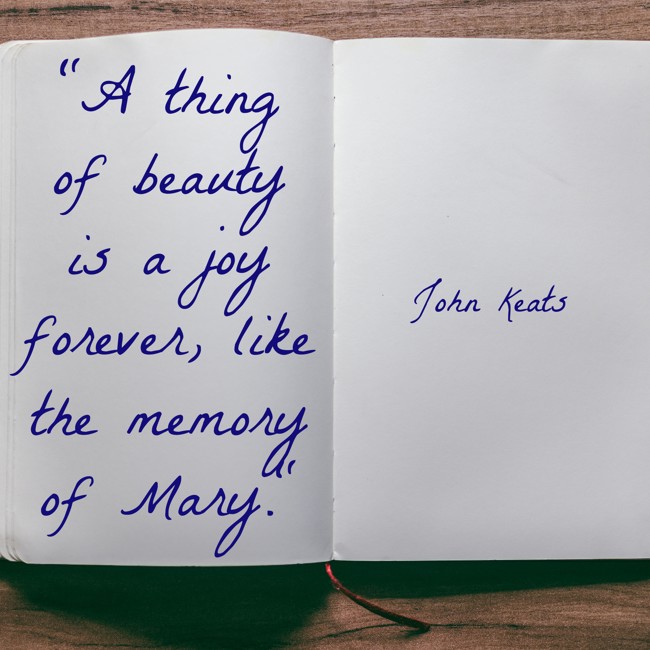 "A thing
of beauty
is a joy
forever, like
the memory
of Mary."
John Keats